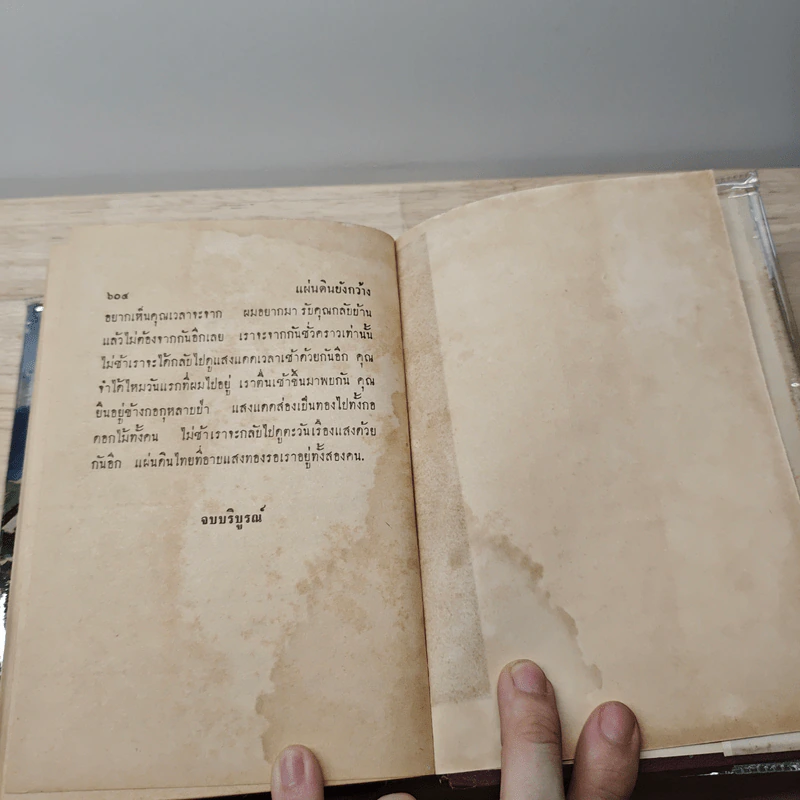 ๖๐๔ แผ่นดินยังกว้าง
อยากเห็นคุณเวลาจะจาก ผมอยากมา รับคุณกลับบ้าน
แล้วไม่ต้องจากกันอีกเลย เราจะจากกันชั่วคราวเท่านั้น
ไม่ช้าเราจะได้กลับไปดูแสงแดดเวลาเช้าด้วยกันอีก คุณ
จำได้ไหมวันแรกที่ผมไปอยู่ เราตื่นเช้าขึ้นมาพบกัน คุณ
ยืนอยู่ข้างกอกุหลาบย้ำ แสงแดดส่องเป็นทองไปทั้งกอ
ดอกไม้ทั้งคน ไม่ช้าเราจะกลับไปดูตะวันเรืองแสงด้วย
กันอีก แผ่นดินไทยที่อาบแสงทองรอเราอยู่ทั้งสองคน.
จบบริบูรณ์